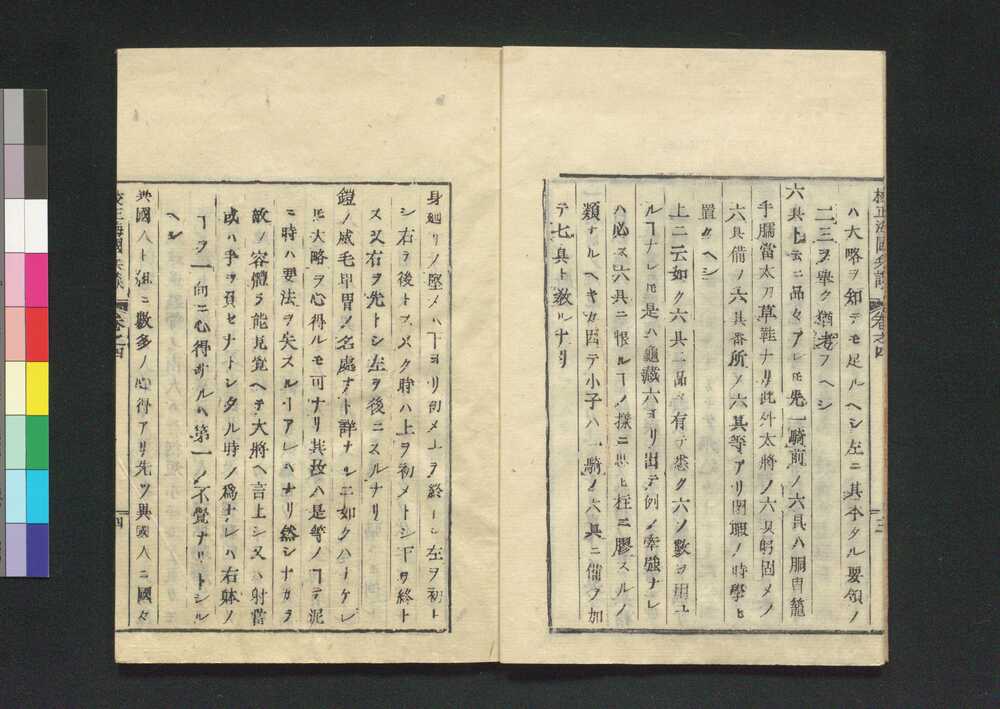 ハ大略ヲ知テモ足ルヘシ左ニ其本タル要領ノ
二三ヲ擧ク猶考フヘシ
六具ト云ニ品々アレ𪜈先一騎前ノ六具ハ胴甲籠
手臑當太刀草鞋ナリ此外大將ノ六具躬固メノ
六具備ノ六具番所ノ六具等アリ閑暇ノ時學ヒ
置クヘシ
上ニ云如ク六具ニ品々有テ悉ク六ノ數ヲ用ユ
ルヿナレ𪜈是ハ龜藏六ヨリ出テ例ノ牽強ナレ
ハ必ス六具ニ限ルヿノ樣ニ思ヒ柱ニ膠スルノ
類ナルヘキカ因テ小子ハ一騎ノ六具ニ備ヲ加
テ七具ト教ルナリ
身廻リノ堅メハ下ヨリ初メ上ヲ終ーシ左ヲ初ト
シ右ヲ後トスヌク時ハ上ヲ初メトシ下ヲ終ト
ス又右ヲ先トシ左ヲ後ニスルナリ
鎧ノ威毛甲冑ノ名處ナト詳ナルニ如クハナケレ
𪜈大略ヲ心得ルモ可ナリ其故ハ是等ノヿテ泥
ニ時ハ要法ヲ失スルヿアレハナリ然シナカラ
敵ノ容體ヲ能見覚ヘテ大將ヘ言上シ又ハ射當
或ハ手ヲ負セナトシタル時ノ爲ナレハ右躰ノ
ヿヲ一向ニ心得サルハ第一ノ不覺ナリトシル
ヘシ
異國人ト組ニ數多ノ心得アリ先ツ異國人ニ國々
校正海國兵談 卷之四
四